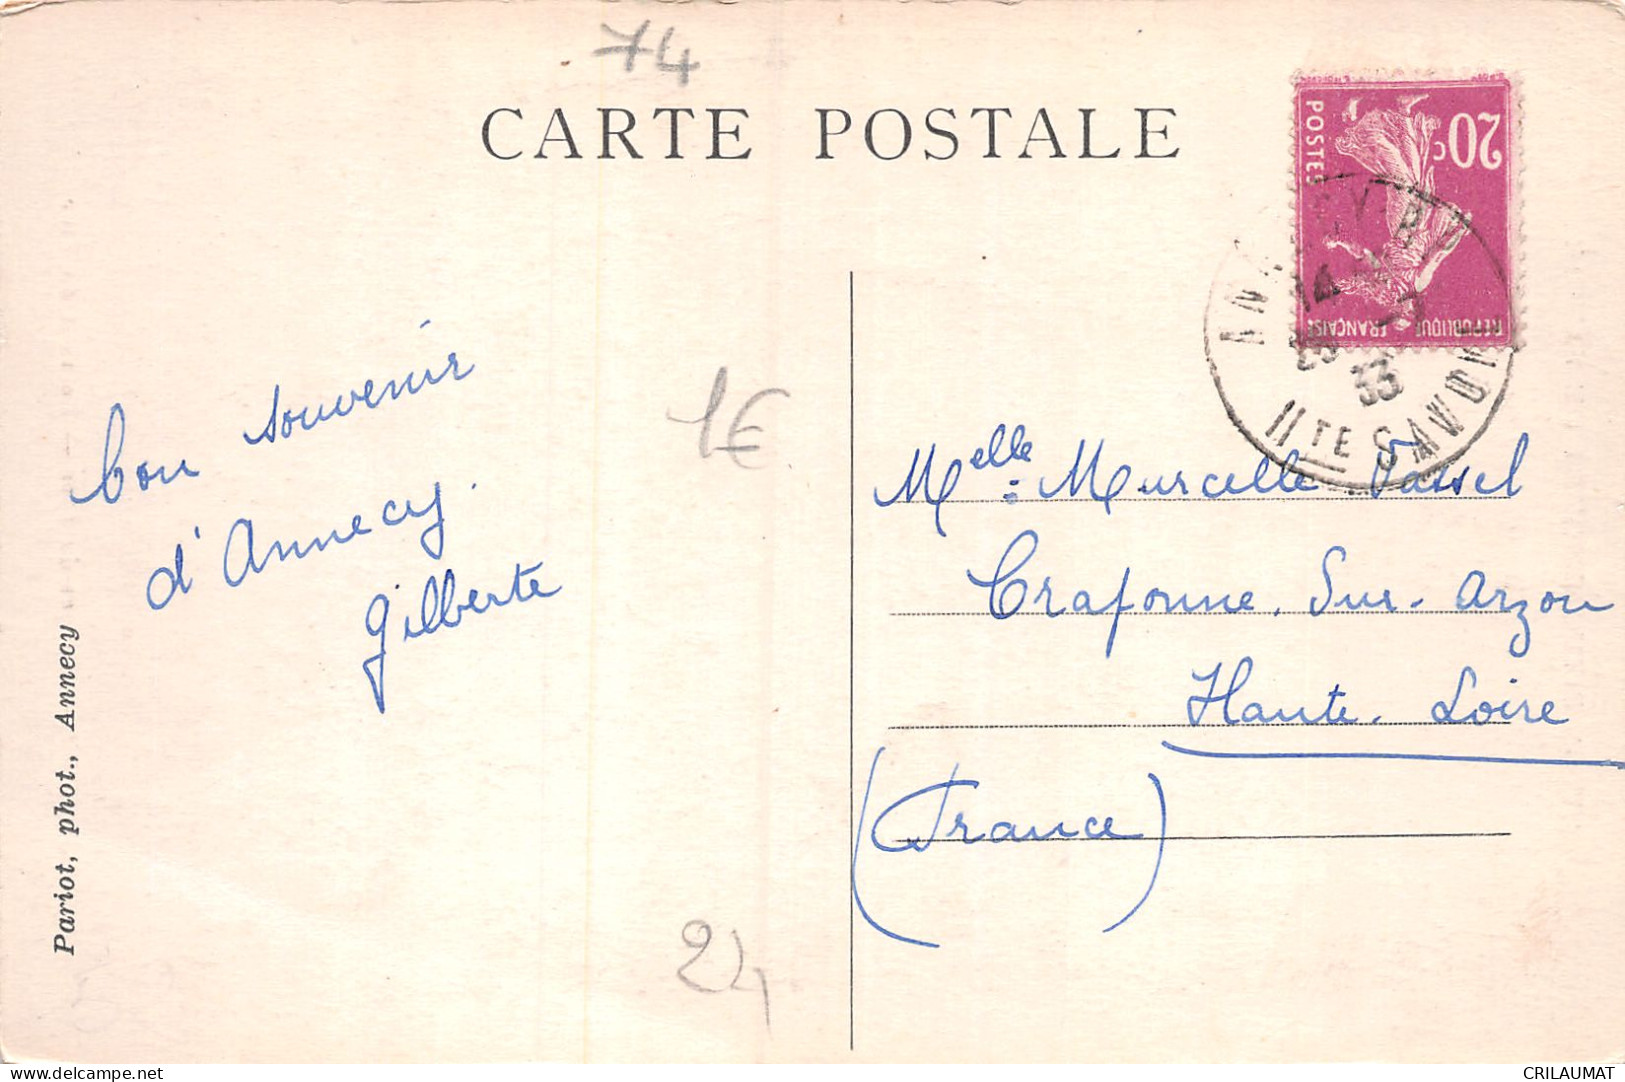 74
CARTE POSTALE
20c
POSTES
REPUBLIQUE FRANÇAISE
14
33
HTE SAVOIE
bon souvenir
d'Annecy.
Gilberte
1€
Melle: Marcelle Vassel
Craponne. Sur. Arzon
Haute. Loire
(France)
24
Pariot, phot., Annecy
CRILAUMAT